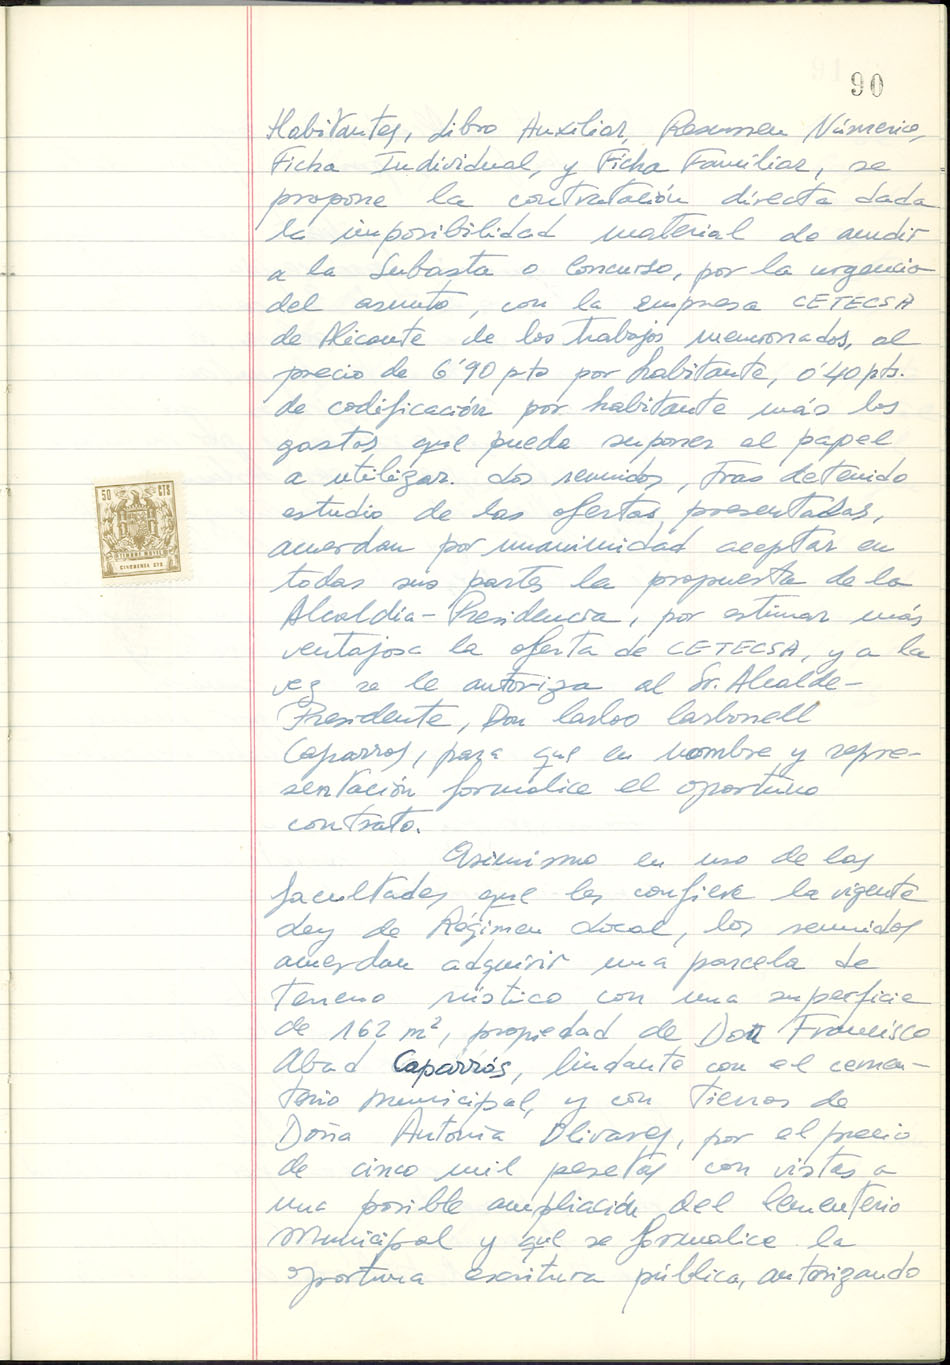 90
Habitantes, Libro Auxiliar, Resumen Númerico,
Ficha Individual, y Ficha Familiar, se
propone la contratación directa dada
la imposibilidad material de acudir
a la Subasta o Concurso, por la urgencia
del asunto, con la empresa CETECSA
de Alicante de los trabajos mencionados, al
precio de 6'90 pts por habitante, 0'40 pts.
de codificación por habitante más los
gastos que pueda suponer el papel
a utilizar. Los reunidos, tras detenido
estudio de las ofertas presentadas,
acuerdan por unanimidad aceptar en
todas sus partes la propuesta de la
Alcaldía-Presidencia, por estimar más
ventajosa la oferta de CETECSA, y a la
vez se le autoriza al Sr. Alcalde-
Presidente, Don Carlos Carbonell
Caparros, para que en nombre y repre-
sentación formalice el oportuno
contrato.
Asimismo en uso de las
facultades que les confiere la vigente
Ley de Régimen Local, los reunidos
acuerdan adquirir una parcela de
terreno rústico con una superficie
de 162 m², propiedad de Don Francisco
Abad Caparrós, lindante con el cemen-
terio municipal, y con tierras de
Doña Antonia Olivares, por el precio
de cinco mil pesetas con vistas a
una posible ampliación del Cementerio
Municipal y que se formalice la
oportuna escritura pública, autorizando
50 CTS
TIMBRE MOVIL
CINCUENTA CTS